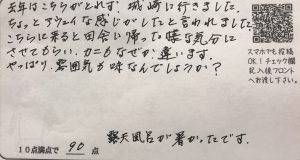 去年はこちらがとれず、城崎に行きました。
ちょっとアウェイな感じがしたと言われました。
こちらに来ると田舎に帰った様な気分に
させてもらい、カニもなぜか違います。
やっぱり、雰囲気も味なんでしょうか?
露天風呂が暑かったです。
10点満点で 90 点
スマホでも投稿
OK!チェック欄
記入後フロント
へお渡し下さい。